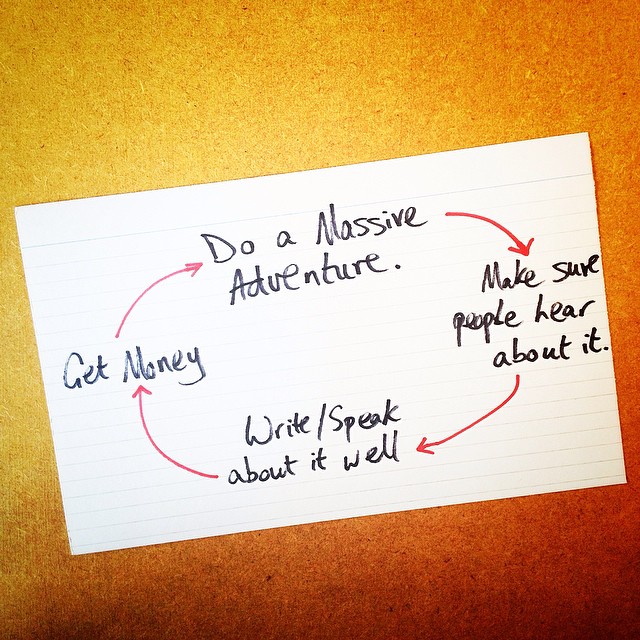 Do a Massive
Adventure.
Make sure
people hear
about it.
Write/Speak
about it well
Get Money